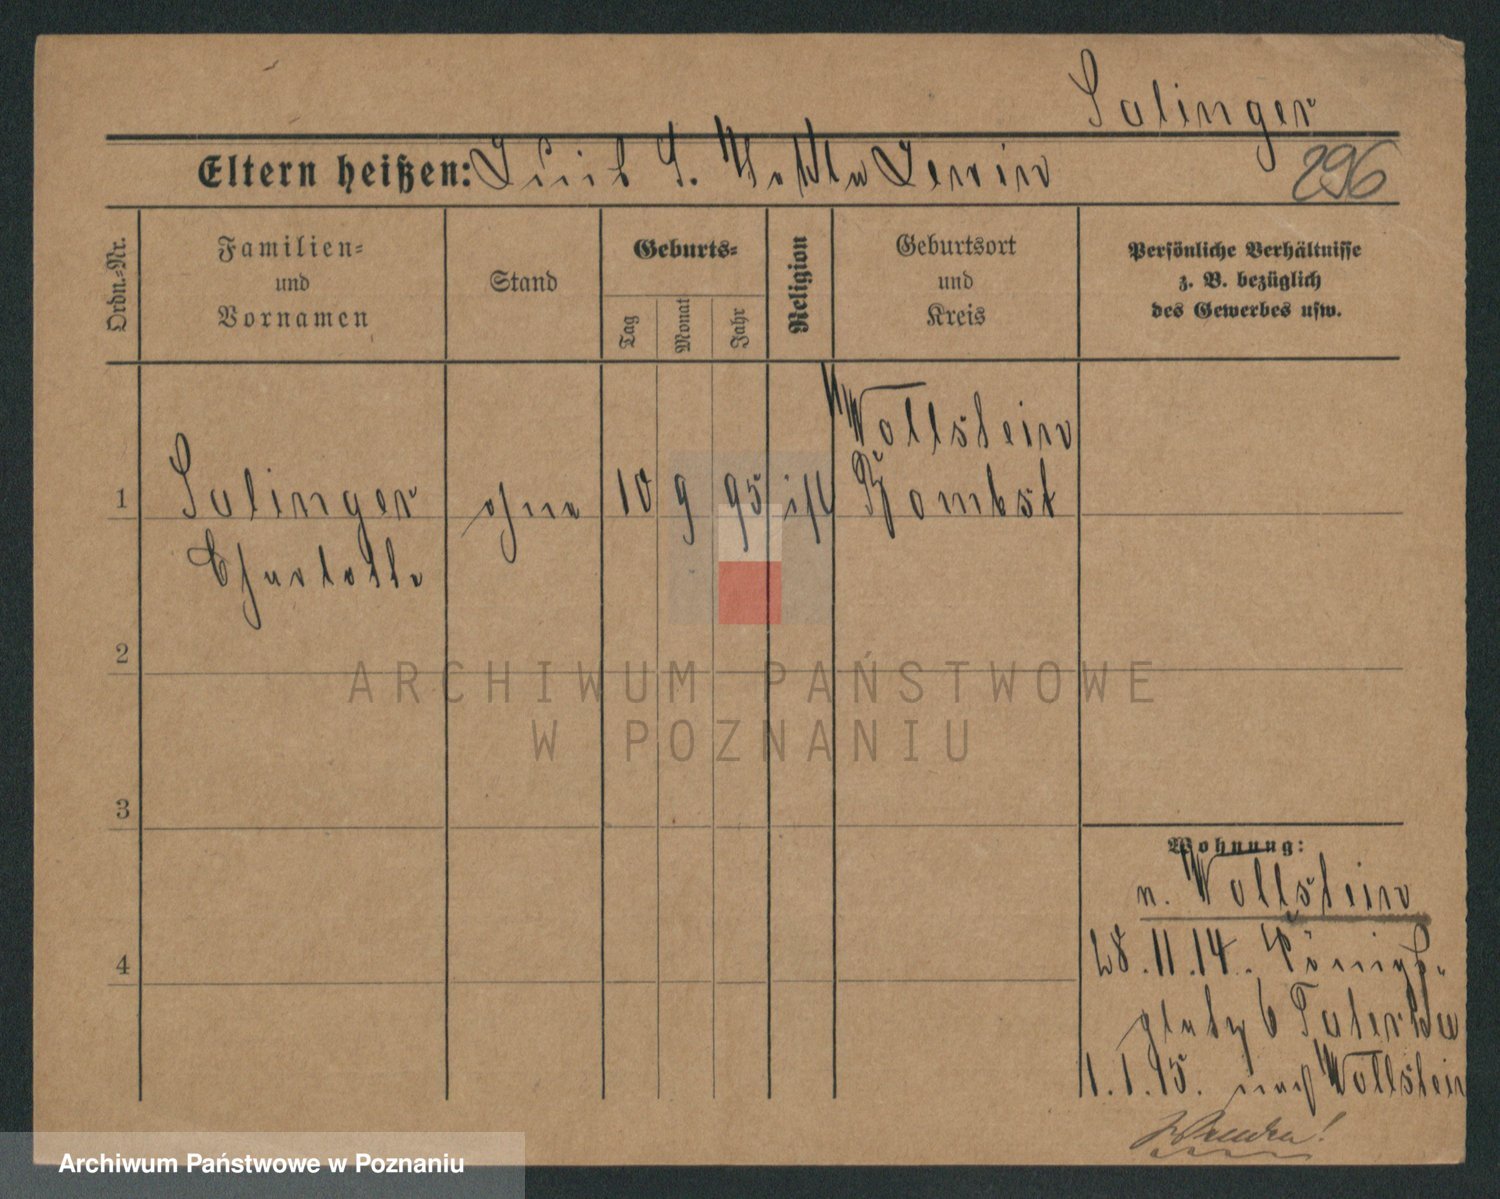 Salinger
Eltern heißen: Levin
296
Ordn.-Nr.
Familien-
und
Vornamen
Stand
Geburts-
Tag
Monat
Jahr
Religion
Geburtsort
und
Kreis
Persönliche Verhältnisse
z. B. bezüglich
des Gewerbes usw.
1
Salinger
Charlotte
ohne
10
9
95
isr
Wollstein
Bomst
2
3
4
Wohnung:
v. Wollstein
28.11.14. Königs-
platz 6
1.1.15. nach Wollstein
Wenden!
ARCHIWUM PAŃSTWOWE
W POZNANIU
Archiwum Państwowe w Poznaniu